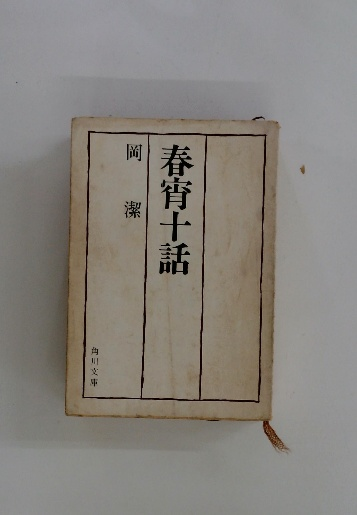 春宵十話
岡 潔
角川文庫